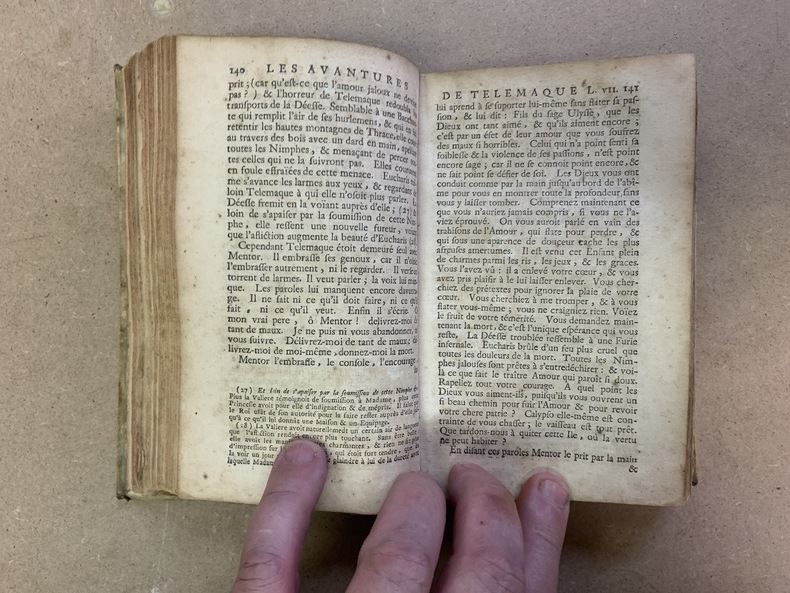 140 LES AVANTURES
prit ; (car qu'est-ce que l'amour jaloux ne
pas ? ) & l'horreur de Telemaque redoubla
transports de la Déesse. Semblable à une
te qui remplit l'air de ses hurlemens, & qui en fait
retentir les hautes montagnes de Thrace, elle
au travers des bois avec un dard en main,
toutes les Nimphes, & menaçant de percer
tes celles qui ne la suivront pas. Elles courent
en foule effraïées de cette menace. Eucharis
me s'avance les larmes aux yeux, & regardant
loin Telemaque à qui elle n'osoit plus parler. La
Déesse fremit en la voïant auprès d'elle ; (27) &
loin de s'apaiser par la soumission de cette
phe, elle ressent une nouvelle fureur,
que l'afliction augmente la beauté d'Eucharis
Cependant Telemaque étoit demeuré seul
Mentor. Il embrasse ses genoux, car il n'osoit
l'embrasser autrement, ni le regarder. Il verse un
torrent de larmes. Il veut parler ; la voix lui
que. Les paroles lui manquent encore
ge. Il ne fait ni ce qu'il doit faire, ni ce qu'il
fait, ni ce qu'il veut. Enfin il s'écrie
mon vrai pere, ô Mentor ! delivrez-moi
tant de maux. Je ne puis ni vous abandonner, ni
vous suivre. Délivrez-moi de tant de maux ;
livrez-moi de moi-même, donnez-moi la mort.
Mentor l'embrasse, le console, l'encourage
(27) Et loin de s'apaiser par la soumission de cette Nimphe
Plus la Valiere témoignois de soumission à Madame, plus cette
Princesse avoit pour elle d'indignation & de mépris. Il falut que
le Roi usât de son autorité pour la faire rester auprès d'elle
qu'à ce qu'il lui donnât une Maison & un Equipage.
(28) La Valiere avoit naturellement un certain air de langueur
que l'afliction rendoit encore plus touchant. Sans être belle
elle avoit les charmantes, & rien ne
d'impression sur qui étoit fort tendre, que de
la voir un jour
laquelle Madame plaindre à lui de la dureté avec
DE TELEMAQUE L. VII. 141
lui aprend à se suporter lui-même sans flater sa pas-
sion, & lui dit : Fils du sage Ulysse, que les
Dieux ont tant aimé, & qu'ils aiment encore ;
c'est par un éfet de leur amour que vous soufrez
des maux si horribles. Celui qui n'a point senti sa
foiblesse & la violence de ses passions, n'est point
encore sage ; car il ne se connoît point encore, &
ne sait point se défier de soi. Les Dieux vous ont
conduit comme par la main jusqu'au bord de l'abî-
me pour vous en montrer toute la profondeur, sans
vous y laisser tomber. Comprenez maintenant ce
que vous n'auriez jamais compris, si vous ne l'a-
viez éprouvé. On vous auroit parlé en vain des
trahisons de l'Amour, qui flate pour perdre, &
qui sous une aparence de douceur cache les plus
afreuses amertumes. Il est venu cet Enfant plein
de charmes parmi les ris, les jeux, & les graces.
Vous l'avez vû : il a enlevé votre cœur, & vous
avez pris plaisir à le lui laisser enlever. Vous cher-
chiez des prétextes pour ignorer la plaie de votre
cœur. Vous cherchiez à me tromper, & à vous
flater vous-même ; vous ne craigniez rien. Voïez
le fruit de votre témérité. Vous demandez main-
tenant la mort, & c'est l'unique espérance qui vous
reste. La Déesse troublée ressemble à une Furie
infernale. Eucharis brûle d'un feu plus cruel que
toutes les douleurs de la mort. Toutes les Nim-
phes jalouses sont prêtes à s'entredéchirer : & voi-
là ce que fait le traître Amour qui paroît si doux.
Rapellez tout votre courage. A quel point les
Dieux vous aiment-ils, puisqu'ils vous ouvrent un
si beau chemin pour fuir l'Amour & pour revoir
votre chere patrie ? Calypso elle-même est con-
trainte de vous chasser ; le vaisseau est tout prêt.
Que tardons-nous à quiter cette Ile, où la vertu
ne peut habiter ?
En disant ces paroles Mentor le prit par la main
&